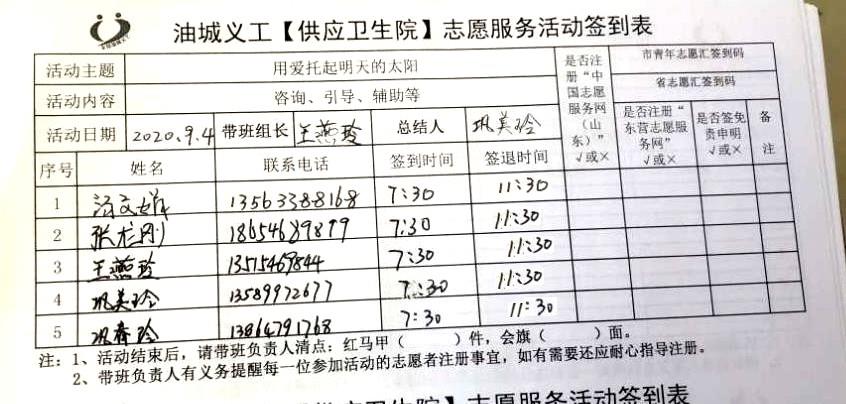 油城义工【供应卫生院】志愿服务活动签到表
活动主题 用爱托起明天的太阳 是否注册“中国志愿服务网（山东）”√或× 市青年志愿汇签到码
活动内容 咨询、引导、辅助等 省志愿汇签到码
活动日期 2020.9.4 带班组长 王燕玲 总结人 巩美玲 是否注册“东营志愿服务网”√或× 是否签免责申明√或× 备注
序号 姓名 联系电话 签到时间 签退时间
1 13563388168 7:30 11:30
2 张龙刚 18654689899 7:30 11:30
3 王燕玲 13515469844 7:30 11:30
4 巩美玲 13589972677 7:30 11:30
5 巩春玲 13864791768 7:30 11:30
注：1、活动结束后，请带班负责人清点：红马甲（ ）件，会旗（ ）面。
2、带班负责人有义务提醒每一位参加活动的志愿者注册事宜，如有需要还应耐心指导注册。
供应卫生院】志愿服务活动签到表